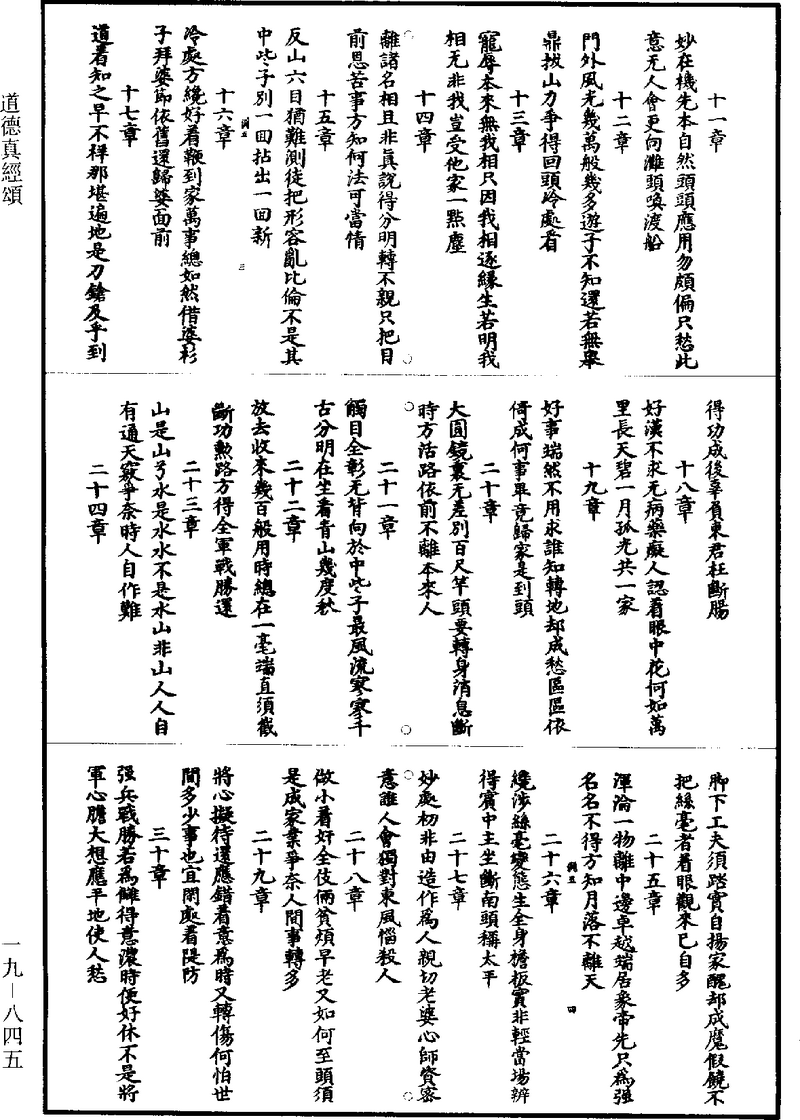 道德真經頌
十一章
妙在機先本自然頭頭應用勿頗偏只愁此
意无人會更向灘頭喚渡船
十二章
門外風光幾萬般幾多遊子不知還若無舉
鼎拔山力爭得回頭冷處看
十三章
寵辱本來無我相只因我相逐緣生若明我
相无非我豈受他家一點塵
十四章
離諸名相且非真說得分明轉不親只把目
前思苦事方知何法可當情
十五章
反山六目猶難測徒把形容亂比倫不是其
中些子別一回拈出一回新
十六章
冷處方纔好着鞭到家萬事總如然借婆衫
子拜婆節依舊還歸婆面前
十七章
道着知之早不祥那堪遍地是刀鎗及乎到
得功成後辜負東君枉斷腸
十八章
好漢不求无病藥癡人認着眼中花何如萬
里長天碧一月孤光共一家
十九章
好事端然不用求誰知轉地却成愁區區依
倚成何事畢竟歸家是到頭
二十章
大圓鏡裏无差別百尺竿頭要轉身消息斷
時方活路依前不離本來人
二十一章
觸目全彰无背向於中些子最風流寥寥千
古分明在坐看青山幾度秋
二十二章
放去收來幾百般用時總在一毫端直須截
斷功勲路方得全軍戰勝還
二十三章
山是山兮水是水水不是水山非山人人自
有通天竅爭奈時人自作難
二十四章
脚下工夫須踏實自揚家醜却成魔假饒不
把絲毫者着眼觀來已自多
二十五章
渾淪一物離中邊卓越端居象帝先只為強
名名不得方知月落不離天
二十六章
纔涉絲毫變態生全身擔板實非輕當場辨
得賓中主坐斷南頭稱太平
二十七章
妙處初非由造作為人親切老婆心師資密
意誰人會獨對東風惱殺人
二十八章
做小看奸全伎倆貧煩早老又如何至頭須
是成家業爭奈人間事轉多
二十九章
將心擬待還應錯着意為時又轉傷何怕世
間多少事也宜閑處着隄防
三十章
强兵戰勝若為讎得意濃時便好休不是將
軍心膽大想應平地使人愁
一九—八四五